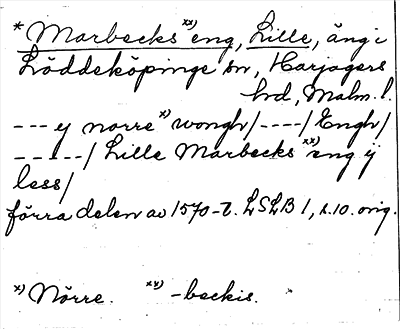 * Marbecks xx) eng, Lille, äng i
Löddeköpinge sn, Harjagers
hd, Malm. l.
--- y norre x) wongh/ ----/ Engh/
-----/ Lille Marbecks xx) eng ij
less/
förra delen av 1570-t. LSLB 1, s. 10. orig.
x) Nörre. xx) -beckis.